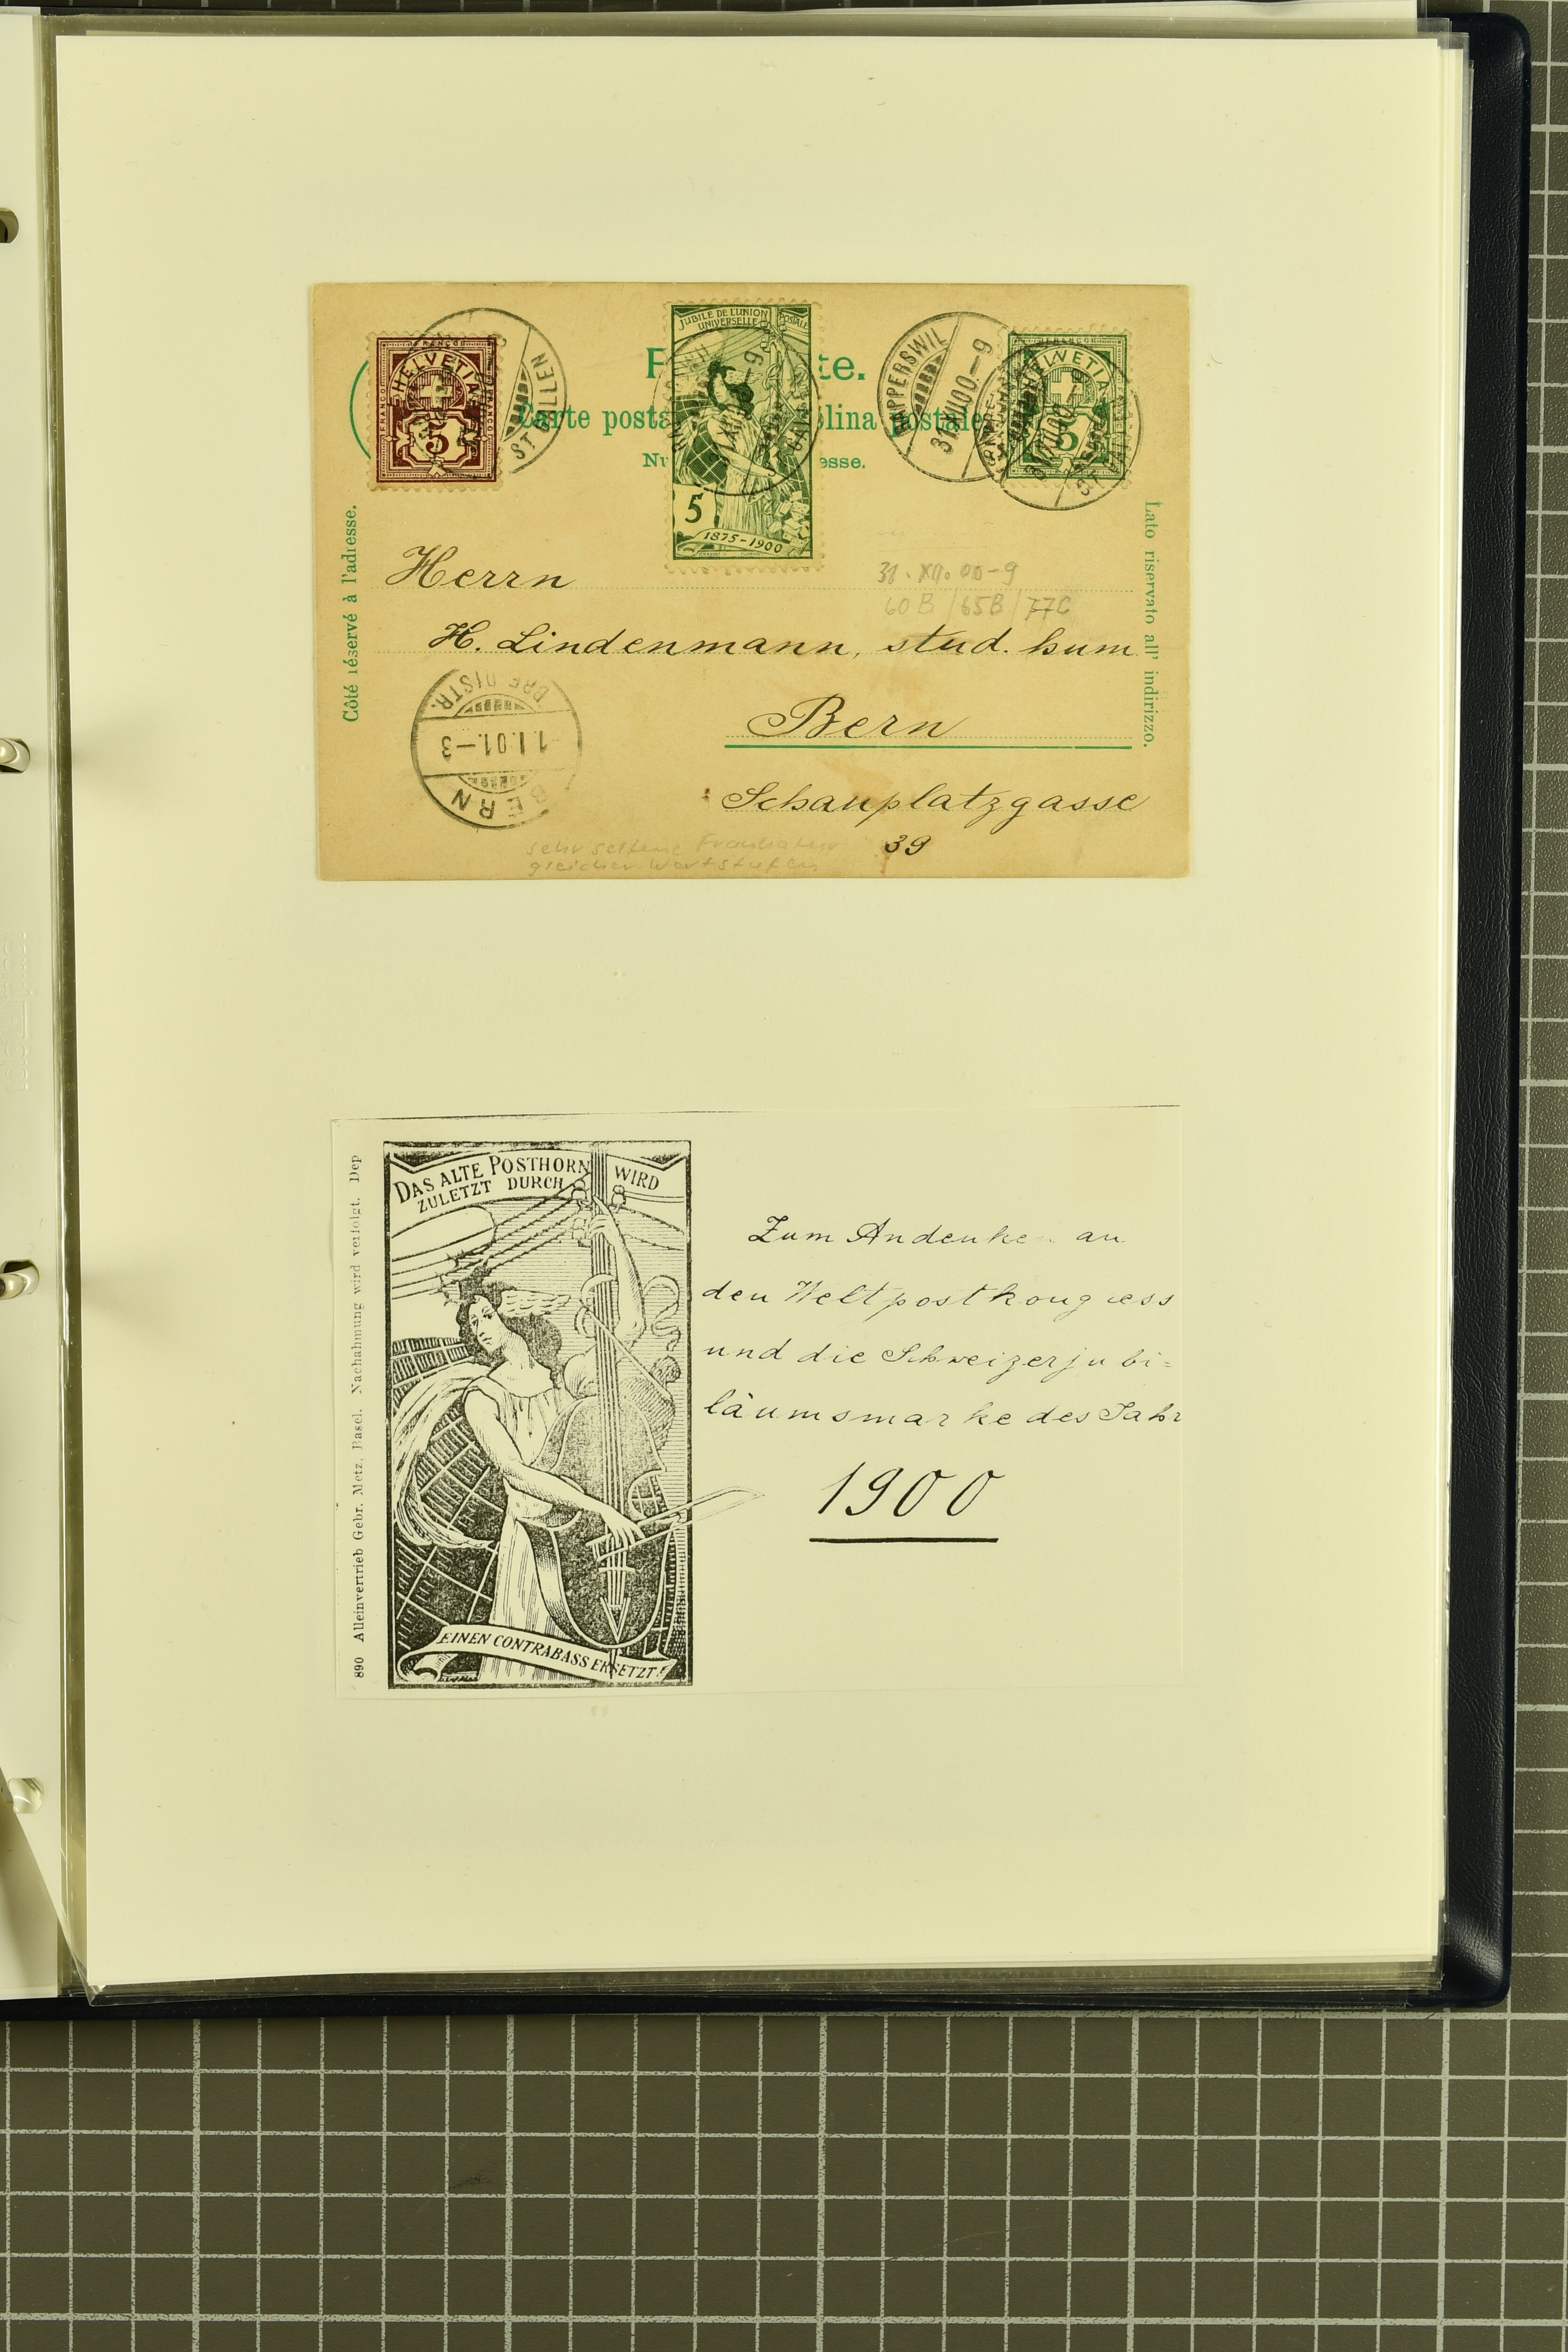 FRANCO
HELVETIA
5
ST. GALLEN
JUBILÉ DE L'UNION POSTALE
UNIVERSELLE
5
1875-1900
RAPPERSWIL
31.XII.00-9
FRANCO
HELVETIA
5
Carte posta
olina postale
Nu
esse.
Côté réservé à l'adresse.
Lato riservato all' indirizzo.
Herrn
31.XII.00-9
60B/65B/77C
H. Lindenmann, stud. hum
Bern
Schauplatzgasse
39
BERN
1.I.01.-3
BRF. DISTR.
sehr seltene Frankatur
gleicher Wertstufen
890 Alleinvertrieb Gebr. Metz, Basel. Nachahmung wird verfolgt. Dep
DAS ALTE POSTHORN WIRD
ZULETZT DURCH
EINEN CONTRABASS ERSETZT!
Zum Andenken an
den Weltpostkongress
und die Schweizerjubi=
läumsmarke des Jahr
1900